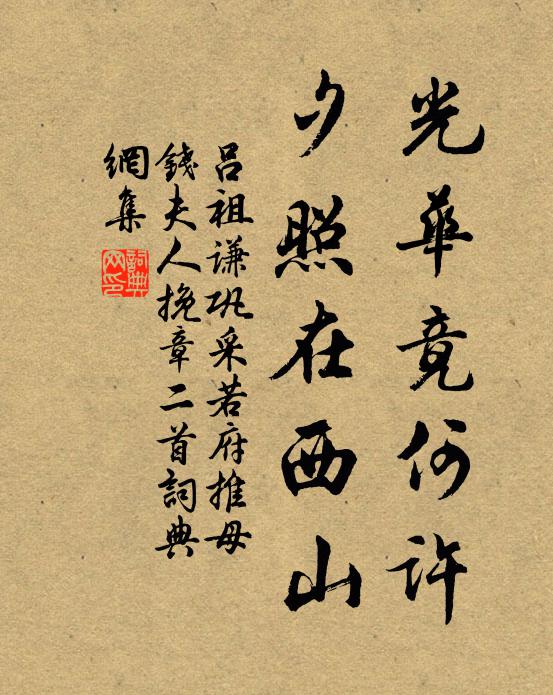 光華竟何許
夕照在西山
呂祖謙巩采若府推母
錢夫人挽章二首詞典
網集
詞典
网印